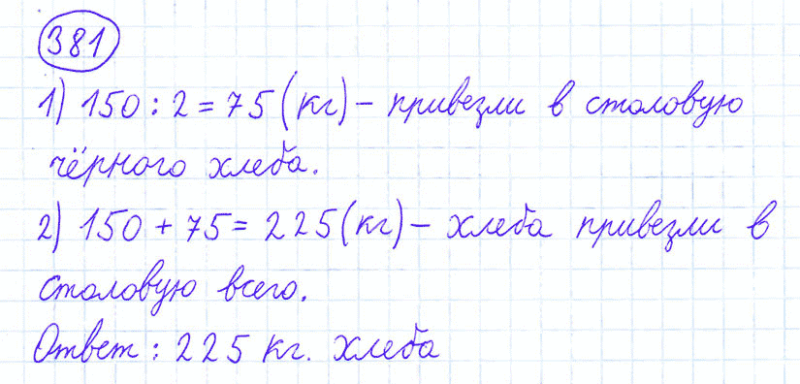 381
1) 150 : 2 = 75 (кг) – привезли в столовую
чёрного хлеба.
2) 150 + 75 = 225 (кг) – хлеба привезли в
столовую всего.
Ответ : 225 кг. хлеба